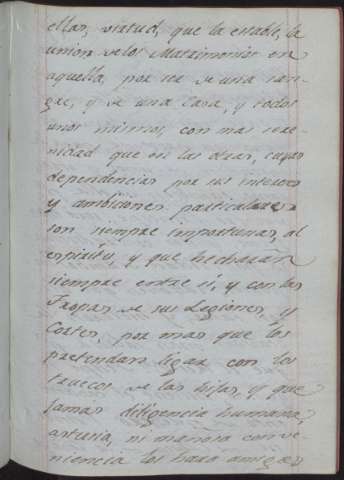 ellas, virtud, que la estable, la
union de los Matrimonios en
aquella, por ser de una san-
gre, y de una Casa, y todos
unos mismos, con mas sere-
nidad que en las otras, cuyas
dependencias por sus intereses
y ambiciones particulares
son siempre importunas, al
espiritu, y que hecharan
siempre entre sí, y con las
Tropas de sus Legiones, y
Cortes, por mas que los
pretendan ligar con los
truecos de las hijas, y que
jamas diligencia humana,
astusia, ni mañosa conve-
niencia los hara amigos